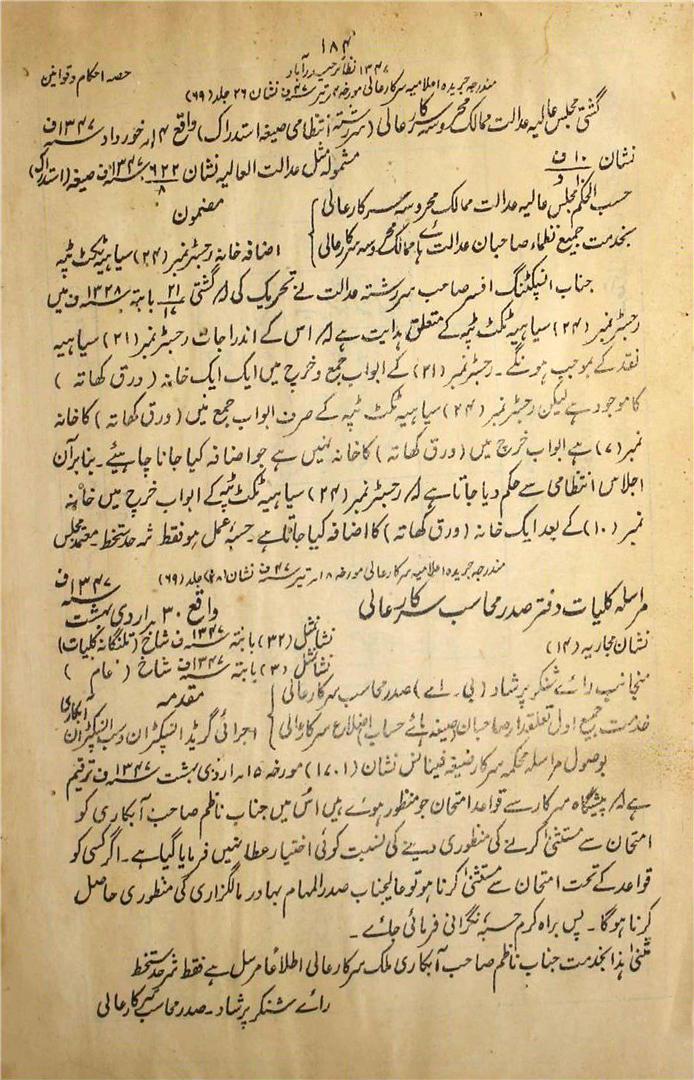 ۱۸۴
۱۳۴۷ نظائر حیدرآباد
حصہ احکام و قوانین
مندرجہ جریدہ اعلامیہ سرکار عالی مورخہ ۴ تیر ۴۷ سنہ ف نشان ۲۶ جلد (۶۹)
گشتی مجلس عالیہ عدالت ممالک محروسہ سرکار عالی (سررشتہ انتظامی صیغہ استدراک) واقع ۱۴ خورداد ۱۳۴۷ سنہ ف
نشان ۱۰ ف
مشمولہ مثل عدالت العالیہ نشان ۶۲۲/۸ ۱۳۴۷ سنہ ف صیغہ (استدراک)
حسب الحکم مجلس عالیہ عدالت ممالک محروسہ سرکار عالی
مضمون
بخدمت جمیع نظماء صاحبان عدالت ہائے ممالک محروسہ سرکار عالی
اضافہ خانہ رجسٹر نمبر (۲۴) سیاہیہ ٹکٹ ٹپہ
جناب انسپکٹنگ افسر صاحب سررشتہ عدالت نے تحریک کی کہ گشتی ۲۱/۱۷ بابتہ ۱۳۲۸ سنہ ف میں
رجسٹر نمبر (۲۴) سیاہیہ ٹکٹ ٹپہ کے متعلق ہدایت ہے کہ اس کے اندراجات رجسٹر نمبر (۲۱) سیاہیہ
نقد کے بموجب ہونگے۔ رجسٹر نمبر (۲۱) کے ابواب جمع و خرچ میں ایک ایک خانہ (ورق کھاتہ)
کا موجود ہے لیکن رجسٹر نمبر (۲۴) سیاہیہ ٹکٹ ٹپہ کے صرف ابواب جمع میں (ورق کھاتہ) کا خانہ
نمبر (۷) ہے ابواب خرچ میں (ورق کھاتہ) کا خانہ نہیں ہے جو اضافہ کیا جانا چاہیئے۔ بنابرآن
اجلاس انتظامی سے حکم دیا جاتا ہے کہ رجسٹر نمبر (۲۴) سیاہیہ ٹکٹ ٹپہ کے ابواب خرچ میں خانہ
نمبر (۱۰) کے بعد ایک خانہ (ورق کھاتہ) کا اضافہ کیا جاتا ہے۔ حسبہ عمل ہو فقط شرحدستخط۔ معتمد مجلس
مندرجہ جریدہ اعلامیہ سرکار عالی مورخہ ۱۸ تیر ۴۷ سنہ ف نشان (۲۸) جلد (۶۹)
مراسلہ کلیات دفتر صدر محاسب سرکار عالی
واقع ۳۰ اردی بہشت ۱۳۴۷ سنہ ف
نشان مجاریہ (۱۴)
نشانمثل (۳۲) بابتہ ۱۳۴۷ سنہ ف شاخ (تلنگانہ کلیات)
نشانمثل (۳) بابتہ ۱۳۴۷ سنہ ف شاخ (عام)
منجانب رائے شنکر پرشاد (بی۔ اے) صدر محاسب سرکار عالی
مقدمہ
خدمت جمیع اول تعلقدار صاحبان (صیغہ ہائے حساب) اضلاع سرکار عالی
اجرائی گریڈ انسپکٹران و سب انسپکٹران آبکاری
بوصول مراسلہ محکمہ سرکار صیغہ فینانس نشان (۱۷۰۱) مورخہ ۱۵ اردی بہشت ۱۳۴۷ سنہ ف ترقیم
ہے کہ پیشگاہ سرکار سے قواعد امتحان جو منظور ہوئے ہیں اس میں جناب ناظم صاحب آبکاری کو
امتحان سے مستثنیٰ کرنے کی منظوری دینے کی نسبت کوئی اختیار عطا نہیں فرمایا گیا ہے۔ اگر کسی کو
قواعد کے تحت امتحان سے مستثنیٰ کرنا ہو تو عالیجناب صدر المہام بہادر مالگزاری کی منظوری حاصل
کرنا ہوگا۔ پس براہ کرم حسبہ نگرانی فرمائی جائے۔
مثنیٰ ہذا بخدمت جناب ناظم صاحب آبکاری ملک سرکار عالی اطلاعاً مرسل ہے فقط شرحدستخط
رائے شنکر پرشاد۔ صدر محاسب سرکار عالی